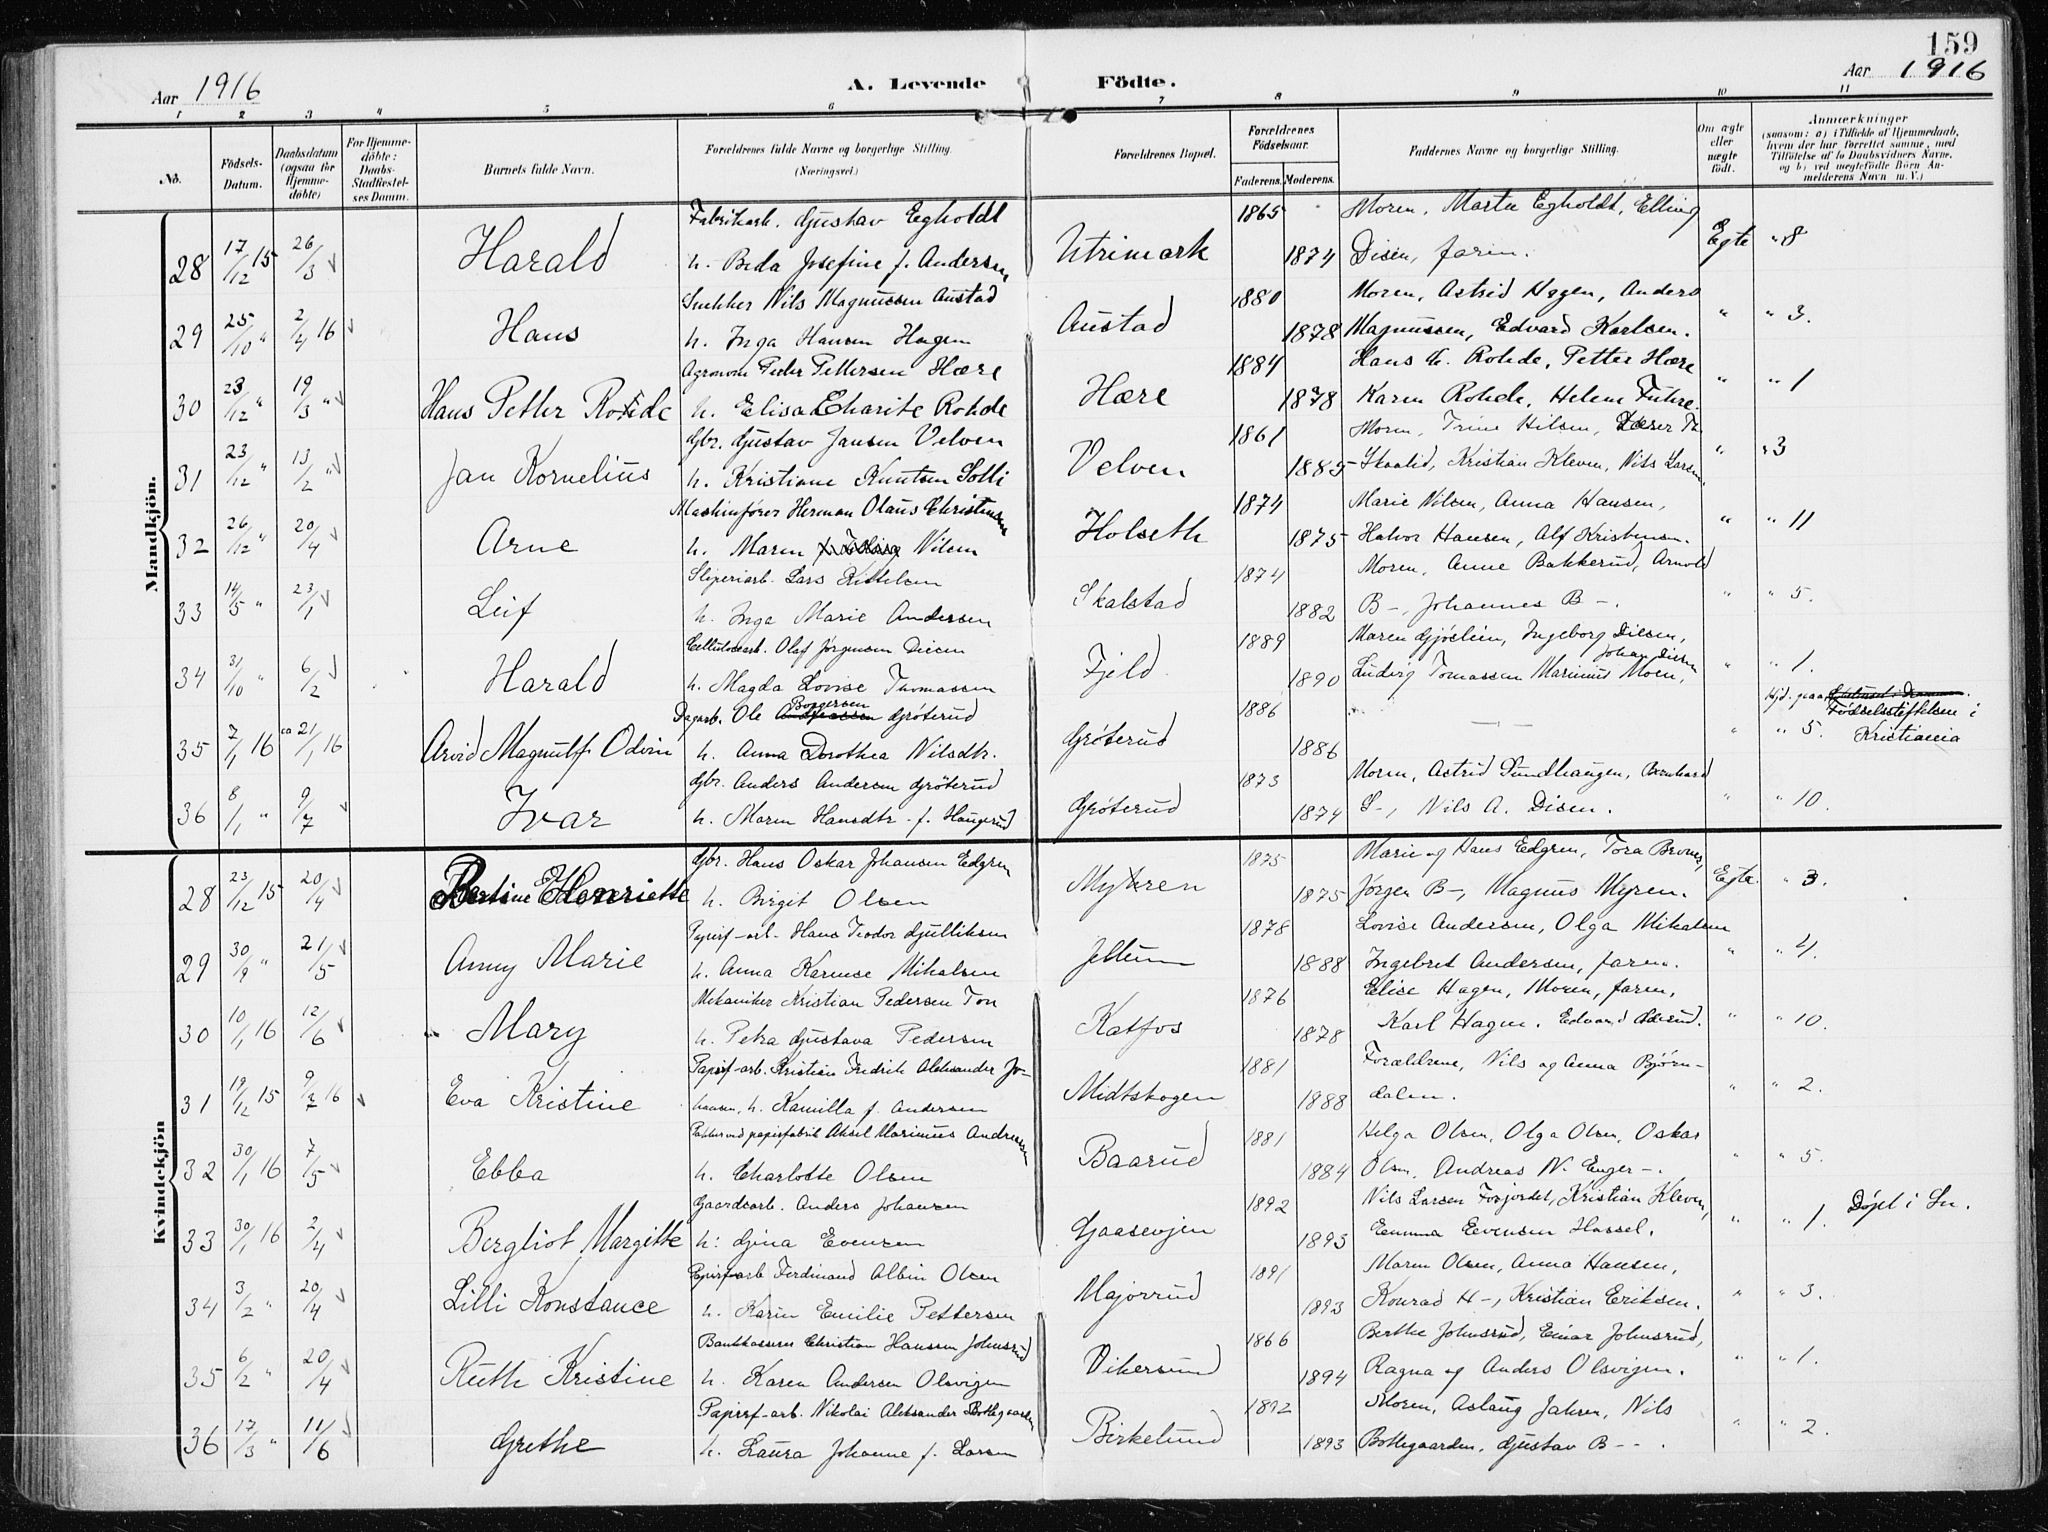 159
Aar 1916
A. Levende Födte.
Aar 1916
1 2 3 4 5 6 7 8 9 10 11
No.
Födsels-Datum.
Daabsdatum (ogsaa for Hjemmedöbte)
For Hjemmedöbte: Daabs-Stadfæstelses Datum.
Barnets fulde Navn.
Forældrenes fulde Navne og borgerlige Stilling. (Næringsvei.)
Forældrenes Bopæl.
Forældrenes Födselsaar.
Faderens. Moderens.
Faddernes Navne og borgerlige Stilling.
Om ægte eller uægte födt.
Anmærkninger
(saasom: a) i Tilfælde af Hjemmedaab, hvem der har forrettet samme, med Tilföielse af to Daabsvidners Navne, og b) ved uegtefödte Börn Anmelderens Navn m. V.)
Mandkjön.
28 17/12 15 26/3 Harald Fabrikarb. Gustav Egholdt Utrimark 1865 Moren, Marta Egholdt, Elling Egte " 8
h. Beda Josefine f. Andersen 1874 Disen, faren.
29 25/10 " 2/4 16 Hans Snekker Nils Magnussen Austad Austad 1880 Moren, Astrid Hagen, Anders " " 3.
h. Inga Hansen Hagen 1878 Magnussen, Edvard Karlsen.
30 23/12 " 19/3 " Hans Petter Rohde Agronom Peder Pettersen Hære Hære 1884 Hans H. Rohde, Petter Hære " " 1
h. Elisa Charite Rohde 1878 Karen Rohde, Helene Fuhre.
31 23/12 " 13/2 " Jan Kornelius Gbr. Gustav Jansen Velven Velven 1861 Moren, Trine Nilsen, " " 3
h. Kristiane Knutsen Solli 1885 Skaalid, Kristian Kleven, Nils Larsen.
32 26/12 " 20/4 Arne Maskinfører Herman Olaus Christensen Holseth 1874 Marie Nilsen, Anna Hansen, " " 11
h. Maren Nilsen 1875 Halvor Hansen, Alf Kristensen.
33 14/5 " 23/1 Leif Sliperiarb. Lars Kittelsen Skalstad 1874 Moren, Anne Bakkerud, Arnold " " 5.
h. Inga Marie Andersen 1882 B-, Johannes B-.
34 31/10 " 6/2 Harald Cellulosearb. Olaf Jørgensen Diesen Fjeld 1889 Maren Gjøslien, Ingeborg Diesen, " " 1.
Johan Diesen
h. Magda Lovise Thomassen 1890 Ludvig Tomassen Marinius Moen,
35 7/1 16 ca 21/1 16 Arvid Magnulf Odvin Dagarb. Ole Borgersen Grøterud Grøterud 1886 " — " " 5. Hjd. paa Fødselsstiftelsen i Kristiania
h. Anna Dorothea Nilsdtr. 1886
36 8/1 " 9/7 Ivar Gbr. Anders Andersen Grøterud Grøterud 1873 Moren, Astrid Sundhaugen, Bernhard " " 10.
h. Maren Hansdtr. f. Haugerud 1874 S-, Nils A. Disen.
Kvindekjön
28 23/12 15 20/4 Bertine Henriette Gbr. Hans Oskar Johansen Edgren Myhren 1875 Marie og Hans Edgren, Tora Brones, Egte. " 3.
h. Birgit Olsen 1875 Jørgen B-, Magnus Myren.
29 30/9 " 21/5 Anny Marie Papirf-arb. Hans Teodor Gulliksen Jellum 1878 Lovise Andersen, Olga Mikalsen " " 4.
h. Anna Karense Mikalsen 1888 Ingebret Andersen, faren.
30 10/1 16 12/6 " Mary Mekaniker Kristian Pedersen Ton Katfos 1876 Elise Hagen, Moren, faren, " " 10.
h. Petra Gustava Pedersen 1878 Karl Hagen, Edvard
31 19/12 15 9/7 16 Eva Kristine Papirf-arb. Kristian Fredrik Aleksander Jo- Midtskogen 1881 Forældrene, Nils og Anna Bjørn- " " 2.
hansen, h. Kamilla f. Andersen 1888 dalen.
32 30/1 16 7/5 Ebba Pakker ved papirfabrik Aksel Marinius Andresen Baarud 1881 Helga Olsen, Olga Olsen, Oskar " " 5.
h. Charlotte Olsen 1884 Olsen, Andreas N. Enger-.
33 30/1 16 2/4 Bergliot Margitte Gaardsarb. Anders Johansen Gaasevjen 1892 Nils Larsen Fosjordet, Kristian Kleven, " " 1. Døpt i Sn.
h. Gina Evensen 1893 Emma Evensen Hassel.
34 3/2 " 20/4 Lilli Konstance Papirf-arb Ferdinand Albin Olsen Majorrud 1891 Maren Olsen, Anna Hansen, " " 3.
h. Karin Emilie Pettersen 1893 Konrad H-, Kristian Eriksen.
35 6/2 " 20/4 Ruth Kristine Bankkasserer Christian Hanssen Johnsrud Vikersund 1866 Berthe Johnsrud, Einar Johnsrud, " " 1.
h. Karen Andersen Olsvigen 1894 Ragna og Anders Olsvigen.
36 17/3 " 11/6 Grethe Papirf-arb. Nikolai Aleksander Bottegaarden Birkelund 1892 Moren, Aslaug Jahren, Nils " " 2.
h. Laura Johanne f. Larsen 1893 Bottegaarden, Gustav B--.